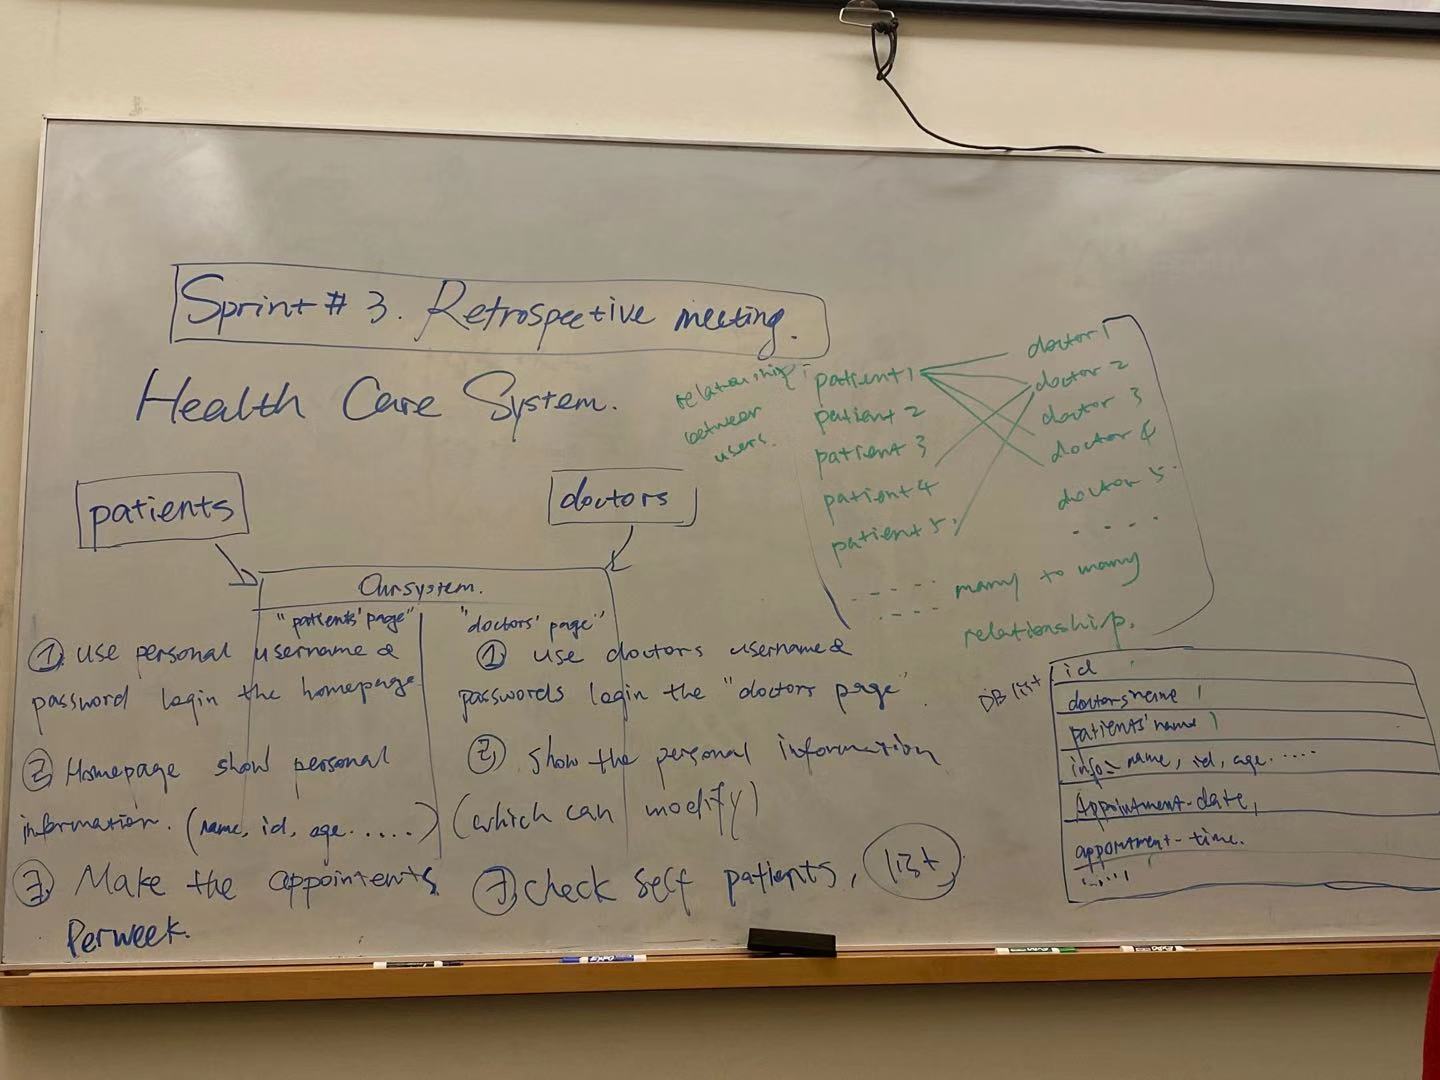 Sprint # 3. Retrospective meeting.
Health Care System.
patients
doctors
Our system.
"patients' page"
① use personal username &
password login the homepage
② Homepage show personal
information. (name, id, age.....)
③ Make the appointents
Per week.
"doctors' page"
① use doctors username &
passwords login the "doctors page".
② show the personal information
(which can modify)
③ check self patients, list
relationship:
between
users.
patient 1
patient 2
patient 3
patient 4
patient 5.
doctor 1
doctor 2
doctor 3
doctor 4
doctor 5.
many to many
relationship.
DB list
id
doctors'name
patients'name
info = name, id, age.....
Appointment-date,
appointment-time.
......